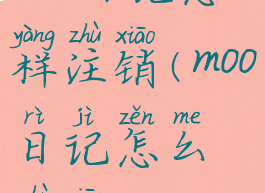 yàng zhù xiāo
样注销(moo
rì jì zěn me
日记怎么